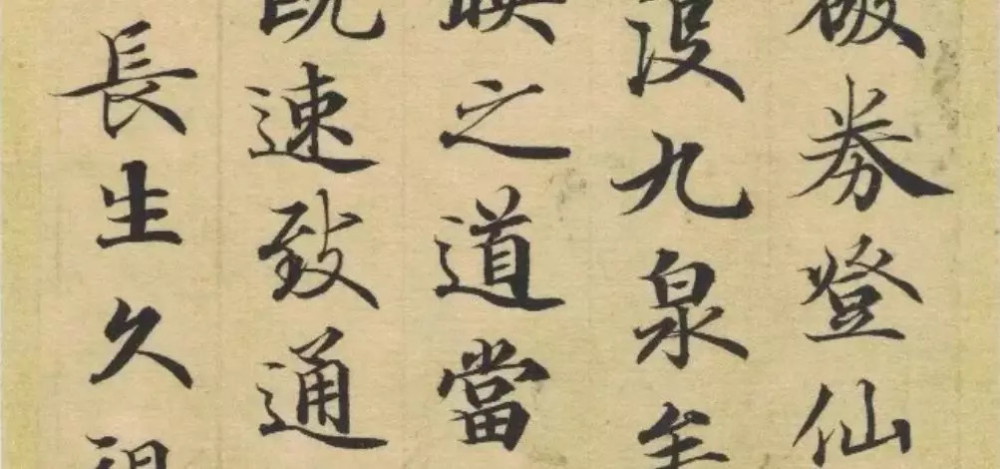 破券登仙
沒九泉
之道當
既速致通
長生久